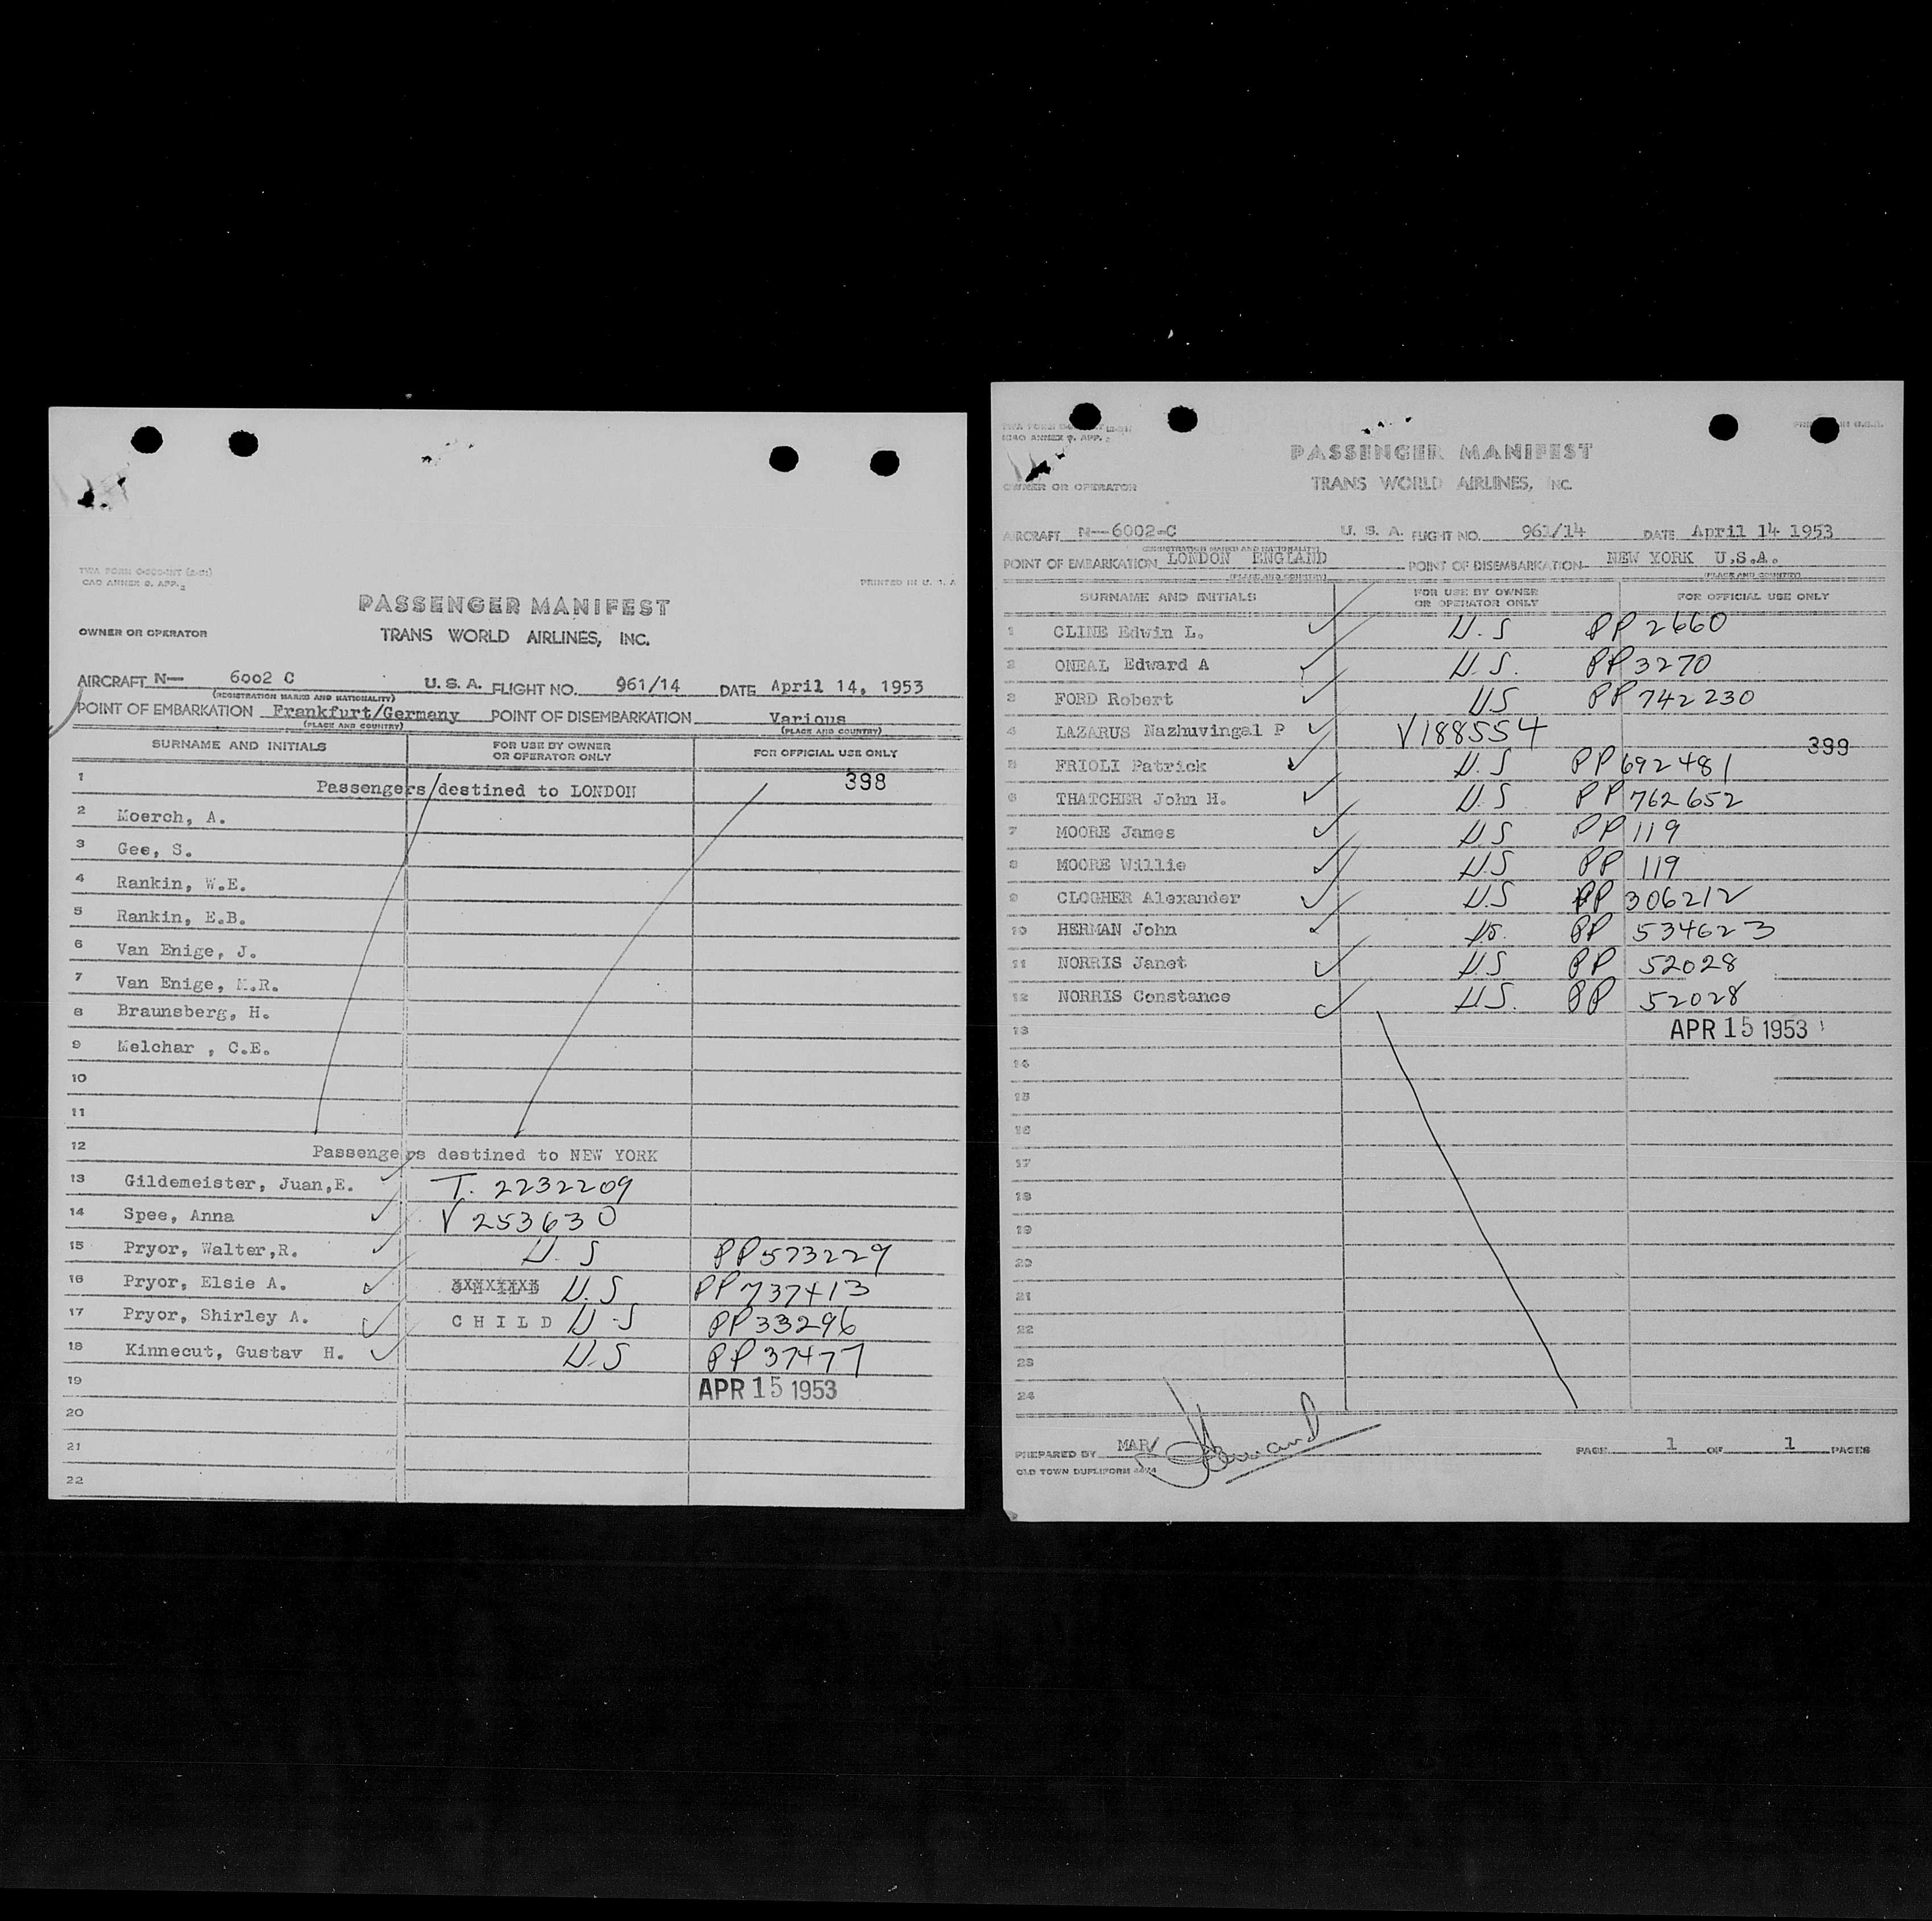 TWA FORM O-800-INT (2-51)
CAO ANNEX 9. APP. 2
PRINTED IN U. S. A
PASSENGER MANIFEST
OWNER OR OPERATOR
TRANS WORLD AIRLINES, INC.
AIRCRAFT N— 6002 C U. S. A. FLIGHT NO. 961/14 DATE April 14, 1953
(REGISTRATION MARKS AND NATIONALITY)
POINT OF EMBARKATION Frankfurt/Germany POINT OF DISEMBARKATION Various
(PLACE AND COUNTRY) (PLACE AND COUNTRY)
SURNAME AND INITIALS FOR USE BY OWNER OR OPERATOR ONLY FOR OFFICIAL USE ONLY
398
1 Passengers destined to LONDON
2 Moerch, A.
3 Gee, S.
4 Rankin, W.E.
5 Rankin, E.B.
6 Van Enige, J.
7 Van Enige, M.R.
8 Braunsberg, H.
9 Melchar , C.E.
10
11
12 Passengers destined to NEW YORK
13 Gildemeister, Juan,E. T. 2232209
14 Spee, Anna V 253630
15 Pryor, Walter,R. U.S PP573229
16 Pryor, Elsie A. U.S PP737413
17 Pryor, Shirley A. C H I L D U-S PP33296
18 Kinnecut, Gustav H. U.S PP37477
19 APR 15 1953
20
21
22
TWA FORM
ICAO ANNEX 9. APP. 2
IN U.S.A.
PASSENGER MANIFEST
OWNER OR OPERATOR
TRANS WORLD AIRLINES, INC.
AIRCRAFT N—6002-C U. S. A. FLIGHT NO. 961/14 DATE April 14 1953
(REGISTRATION MARKS AND NATIONALITY)
POINT OF EMBARKATION LONDON ENGLAND POINT OF DISEMBARKATION NEW YORK U.S.A.
(PLACE AND COUNTRY) (PLACE AND COUNTRY)
SURNAME AND INITIALS FOR USE BY OWNER OR OPERATOR ONLY FOR OFFICIAL USE ONLY
1 CLINE Edwin L. U.S PP 2660
2 ONEAL Edward A U.S. PP 3270
3 FORD Robert US PP 742230
4 LAZARUS Nazhuvingal P V188554
399
5 FRIOLI Patrick U.S PP 692481
6 THATCHER John H. U.S PP 762652
7 MOORE James US PP 119
8 MOORE Willie U.S PP 119
9 CLOGHER Alexander U.S PP 306212
10 HERMAN John US. PP 534623
11 NORRIS Janet U.S PP 52028
12 NORRIS Constance US. PP 52028
13 APR 15 1953
14
15
16
17
18
19
20
21
22
23
24
PREPARED BY MAR/ PAGE 1 OF 1 PAGES
OLD TOWN DUPLIFORM